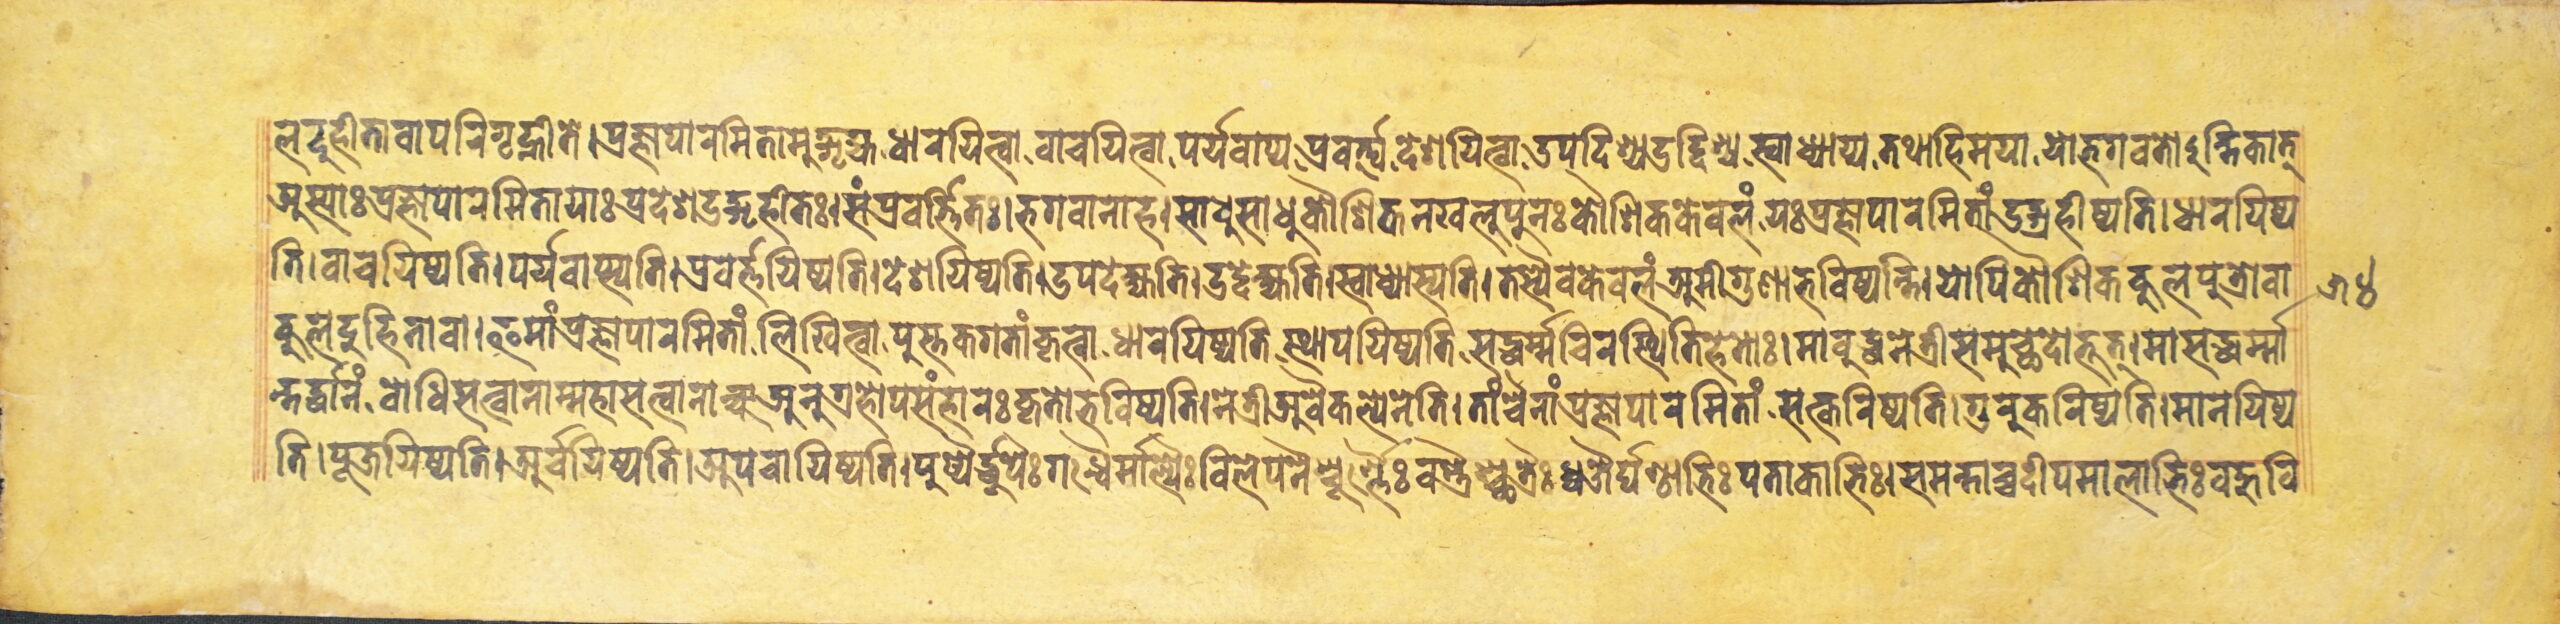 लदुहीतावापरिगृह्णीते।प्रज्ञापारमितामुद्गृह्य धारयित्वा वाचयित्वा पर्यवाप्य प्रवर्त्त्य देशयित्वा उपदिश्यउद्दिश्य स्वाध्याय्य तथाहिमया योभगवतोऽन्तिकात्
अस्याःप्रज्ञापारमितायाःप्रदेशउद्गृहीतः।संप्रवर्त्तितः।भगवानाह।साधुसाधुकौशिकनखलुपुनःकौशिककेवलं यःप्रज्ञापारमितांउद्ग्रहीष्यति।धारयिष्य
ति।वाचयिष्यति।पर्यवाप्स्यति।प्रवर्त्तयिष्यति।देशयिष्यति।उपदेक्ष्यति।उद्देक्ष्यति।स्वाध्यास्यति।तस्यैवकेवलं अमीगुणाभविष्यन्ति।योपिकौशिककुलपुत्रोवा
कुलदुहितावा।इमांप्रज्ञापारमितां लिखित्वा पुस्तकगतांकृत्वा धारयिष्यति स्थापयिष्यति सद्धर्म्मचिरस्थितिहेतोः।माबुद्धनेत्रीसमुच्छेदोभूत्।मासद्धर्म्मा
न्तर्द्धानं बोधिसत्वानाम्महासत्वानाञ्च अनुग्रहोपसंहारःकृतोभविष्यति।नेत्रीअवैकल्येनेति।तांचैनांप्रज्ञापारमितां सत्करिष्यति।गुरुकरिष्यति।मानयिष्य
ति।पूजयिष्यति।अर्चयिष्यति।अपचायिष्यति।पुष्पैर्द्धूपैःगन्धैर्माल्यैःविलेपनैश्चूर्ण्णैःवस्त्रैश्छत्रैःध्वजैर्घण्टाभिःपताकाभिः।समन्ताच्चदीपमालाभिःबहुवि